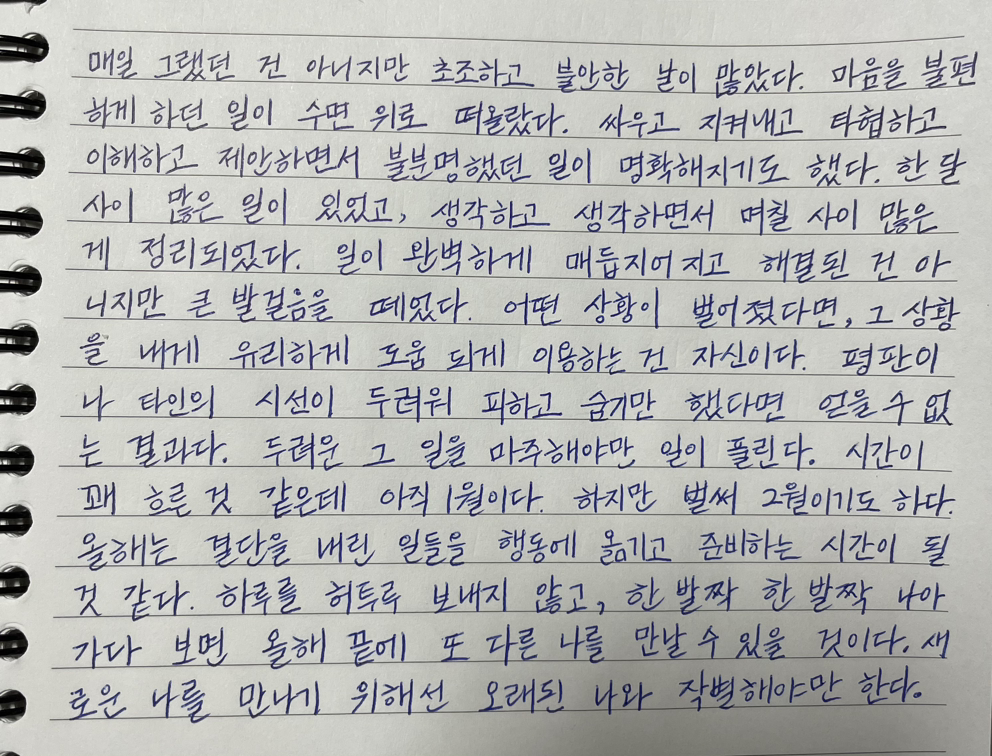 매일 그랬던 건 아니지만 초조하고 불안한 날이 많았다. 마음을 불편
하게 하던 일이 수면 위로 떠올랐다. 싸우고 지켜내고 타협하고
이해하고 제안하면서 불분명했던 일이 명확해지기도 했다. 한 달
사이 많은 일이 있었고, 생각하고 생각하면서 며칠 사이 많은
게 정리되었다. 일이 완벽하게 매듭지어지고 해결된 건 아
니지만 큰 발걸음을 떼었다. 어떤 상황이 벌어졌다면, 그 상황
을 내게 유리하게 도움 되게 이용하는 건 자신이다. 평판이
나 타인의 시선이 두려워 피하고 숨기만 했다면 얻을 수 없
는 결과다. 두려운 그 일을 마주해야만 일이 풀린다. 시간이
꽤 흐른 것 같은데 아직 1월이다. 하지만 벌써 2월이기도 하다.
올해는 결단을 내린 일들을 행동에 옮기고 준비하는 시간이 될
것 같다. 하루를 허투루 보내지 않고, 한 발짝 한 발짝 나아
가다 보면 올해 끝에 또 다른 나를 만날 수 있을 것이다. 새
로운 나를 만나기 위해선 오래된 나와 작별해야만 한다.